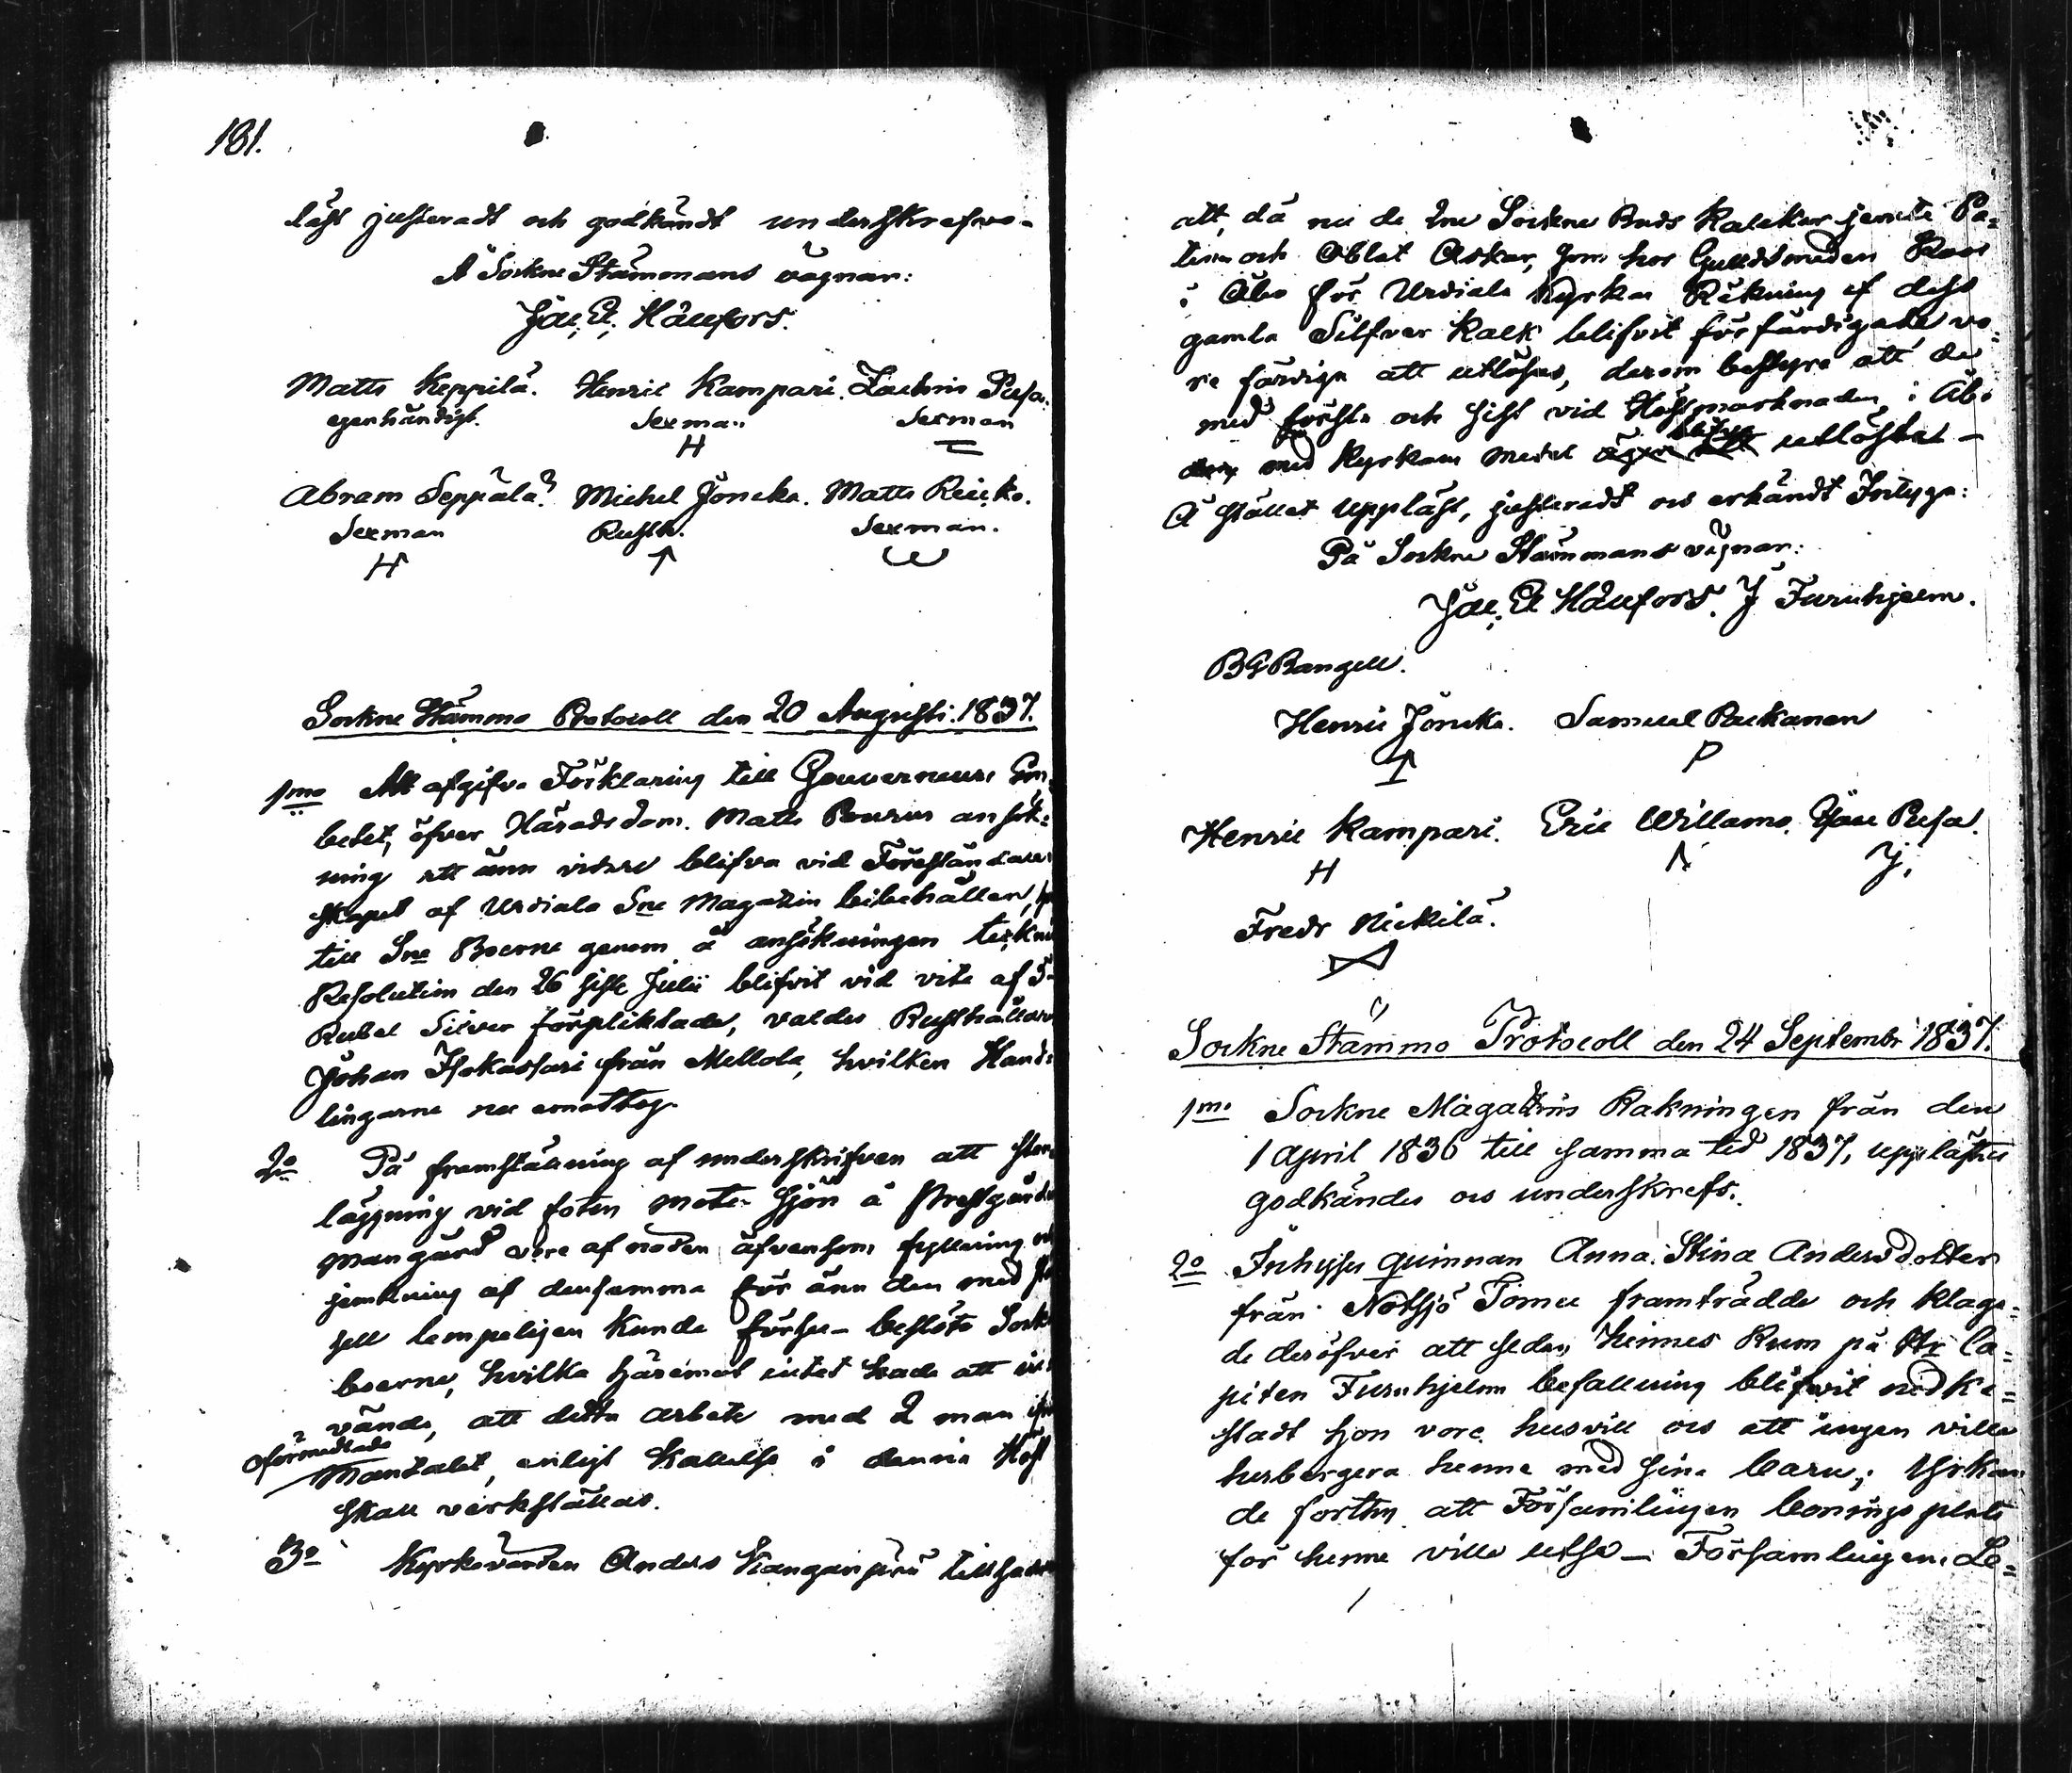 181.
läst justeradt och godkändt underskrefvo-
Å Sockne Stämmans vägnar:
Jac. E. Hällfors.
Matts Keppilä. Henric Kampari. Zachris Pusa.
egenhändigt. Sexman Sexman
H
Abram Seppälä Michel Jöncka. Matts Reicko.
Sexman Rusth. Sexman.
H
Sockne Stämmo Protocoll den 20 Augusti. 1837.
1mo Att afgifva Förklaring till Gouverneurs Em-
betet, öfver Häradsdom. Matts ansök-
ning att änn vidare blifva vid Föreståndare
skapet af Urdiala Sne Magazin bibehållen,
till Sne Boerne genom å ansökningen teckn
Resolution den 26 sistl Julii blifvit vid vite af 5
Rubel Silver förpliktade, valdes Rusthållare
Johan Isokassari från Mellola, hvilken Hand-
lingarne nu emottog.
2o På framställning af underskrifven att sten
läggning vid foten mot sjön å Prestgårds
mangård vore af nöden äfvensom fyllning
jemkning af densamma för änn den med
sell lempeligen kunde förses- beslöto Sock
boerne, hvilka häremot intet hade att in
vända, att detta arbete med 2 man
oförmedlade
Mantalet, enligt kallelse i denna Höst
skall verkställas.
3o Kyrkovärden Anders Kanganperä tillsades
att, då nu de 2ne Sockne Buds Kalckar jemte Pa-
tener och Oblat Askar, som hos Guldsmeden Roos
i Åbo för Urdiala Kyrkas Räkning af dess
gamla Silfver Kalk blifvit förfärdigade vo-
re färdiga att utlösas, derom bestyra att de
med första och sist vid Höstmarknaden i Åbo
blifva
med Kyrkans medel utlöste-
Å stället uppläst, justeradt oc erkändt Intyga:
På Sockne Stämmans vägnar:
Jac. E Hällfors. J Furuhjelm.
BG Bangell.
Henric Jöncka. Samuel Packanen
P
Henric Kampari. Eric Willamo. Isac Pusa.
H J.
Fredr Nickilä.
Sockne Stämmo Protocoll den 24 Septembr 1837.
1mo Sockne Magazins Räkningen från den
1 April 1836 till samma tid 1837, upplästes
godkändes oc underskrefs.
2o Inhyses quinnan Anna Stina Andersdotter
från Notsjö Tomu framträdde och klaga-
de deröfver att sedan hennes Rum på Hr Ca-
piten Furuhjelms befallning blifvit nedka-
stadt hon vore husvill oc att ingen ville
herbergera henne med sina barn; Yrkan
de förthy att Församlingen bonings plats
för henne ville utse- Församlingens Le-